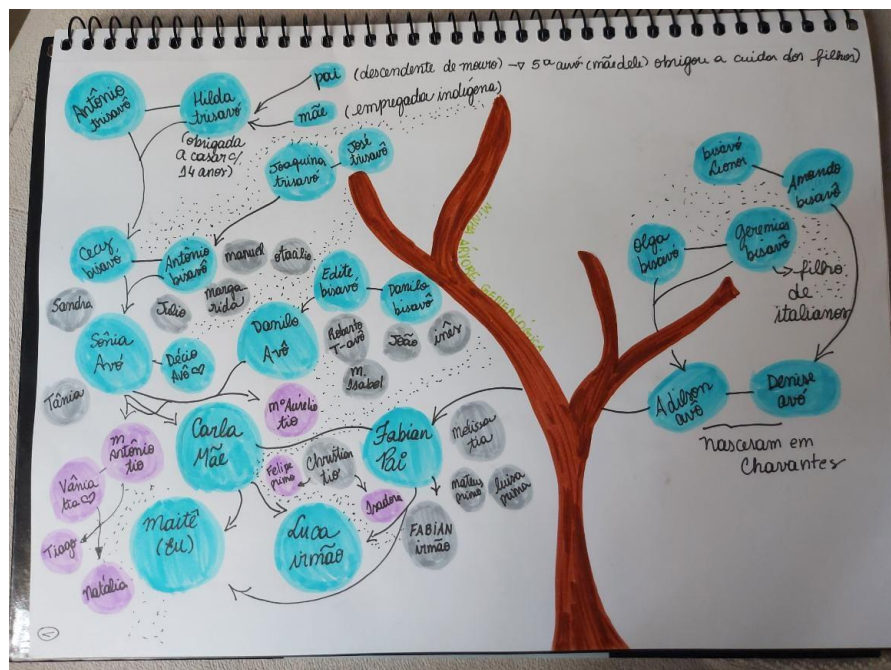 Antônio
trisavô
Hilda
trisavó
(obrigada
a casar c/
14 anos)
pai (descendente de mouro) → 5ª avó (mãe dele) obrigou a cuidar dos filhos)
mãe (empregada indígena)
Joaquina
trisavó
José
trisavô
Cecy
bisavó
Antônio
bisavô
manuel
otacilio
marga-
rida
Julio
Sandra
Edite
bisavó
Danilo
bisavô
Sônia
Avó
Décio
Avô ♡
Danilo
Avô
Roberto
T-avô
João
inês
m.
Isabel
Tânia
Mº Aurélio
tio
m
Antônio
tio
Carla
Mãe
Fabian
Pai
Melissa
tia
Felipe
primo
Christian
tio
Isadora
mateus
primo
luisa
prima
Vânia
tia ♡
Tiago
Natália
Maitê
(EU)
Luca
irmão
FABIAN
irmão
MINHA ÁRVORE GENEALÓGICA
bisavó
Leonor
Amando
bisavô
Olga
bisavó
Geremias
bisavô
→ filho
de
italianos
Adilson
avô
Denise
avó
nasceram em
Chavantes